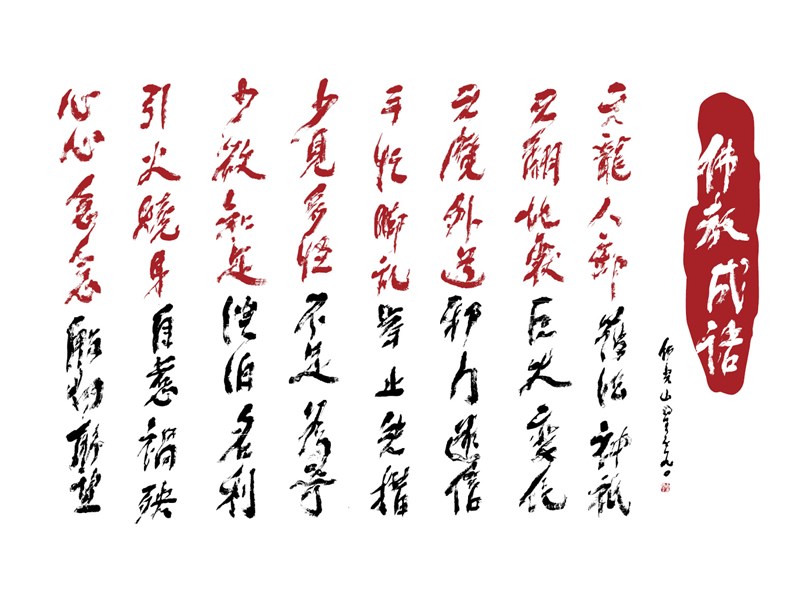 佛教成語
佛光山星雲
天龍八部護法神祇
天翻地覆巨大變化
天魔外道邪門迷信
手忙腳亂舉止無措
少見多怪不足為奇
少欲知足澹泊名利
引火燒身自惹禍殃
心心念念殷切盼望